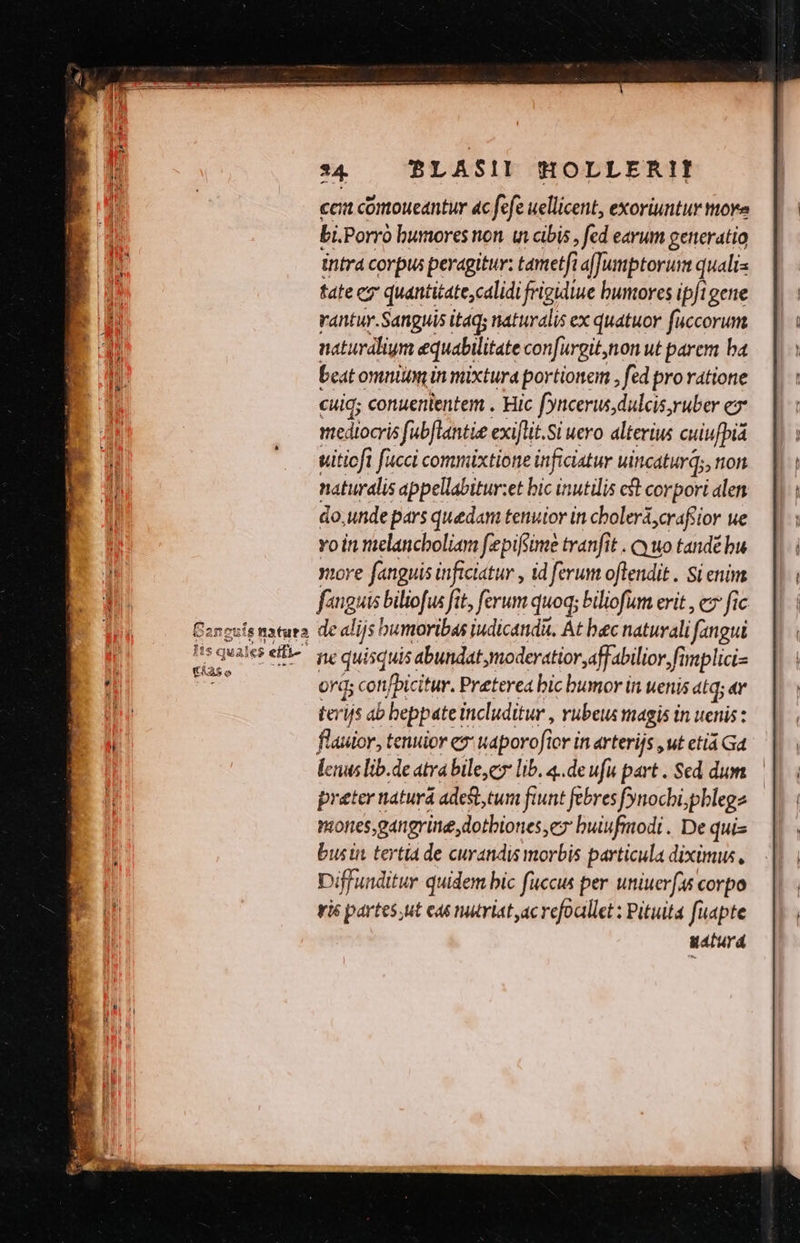 34 BLASII HOLLERII
cem cõmoueantur ac sese uellicent, exoriuntur mor-
bi. Porrò humores non in cibis, sed earum generatio
intra corpus peragitur: tametsi assumptorum quali-
tate & quantitate, calidi frigidiue humores ipsi gene
rantur. Sanguis itaq; naturalis ex quatuor succorum
naturalium æquabilitate consurgit, non ut parem ha
beat omnium in mixtura portionem, sed pro ratione
cuiq; conuenientem. Hic syncerus, dulcis, ruber &
mediocris substantiæ existit. Si uero alterius cuiuspiã
uitiosi succi commixtione inficiatur uincaturq;, non
naturalis appellabitur: et hic inutilis est corpori alen
do, unde pars quædam tenuior in cholerã, crassior ue
ro in melancholiam sæpissimè transit. Quo tandē hu
more sanguis inficiatur, id serum ostendit. Si enim
sanguis biliosus sit, serum quoq; biliosum erit, & sic
Sanguis natura
lis quales effi-
ciāt.
de alijs humoribus iudicandũ. At hæc naturali sangui
ne quisquis abundat, moderatior, affabilior, simplici-
orq; conspicitur. Præterea hic humor in uenis atq; ar
terijs ab heppate includitur, rubeus magis in uenis:
flauior, tenuior & uaporosior in arterijs, ut etiã Ga
lenus lib. de atra bile, & lib. 4. de usu part. Sed dum
præter naturã adest, tum fiunt febres synochi, phleg-
mones, gangrinæ, dothiones, & huiusmodi. De qui-
bus in tertia de curandis morbis particula diximus.
Diffunditur quidem hic succus per uniuersas corpo
ris partes, ut eas nutriat, ac refocillet: Pituita suapte
natura